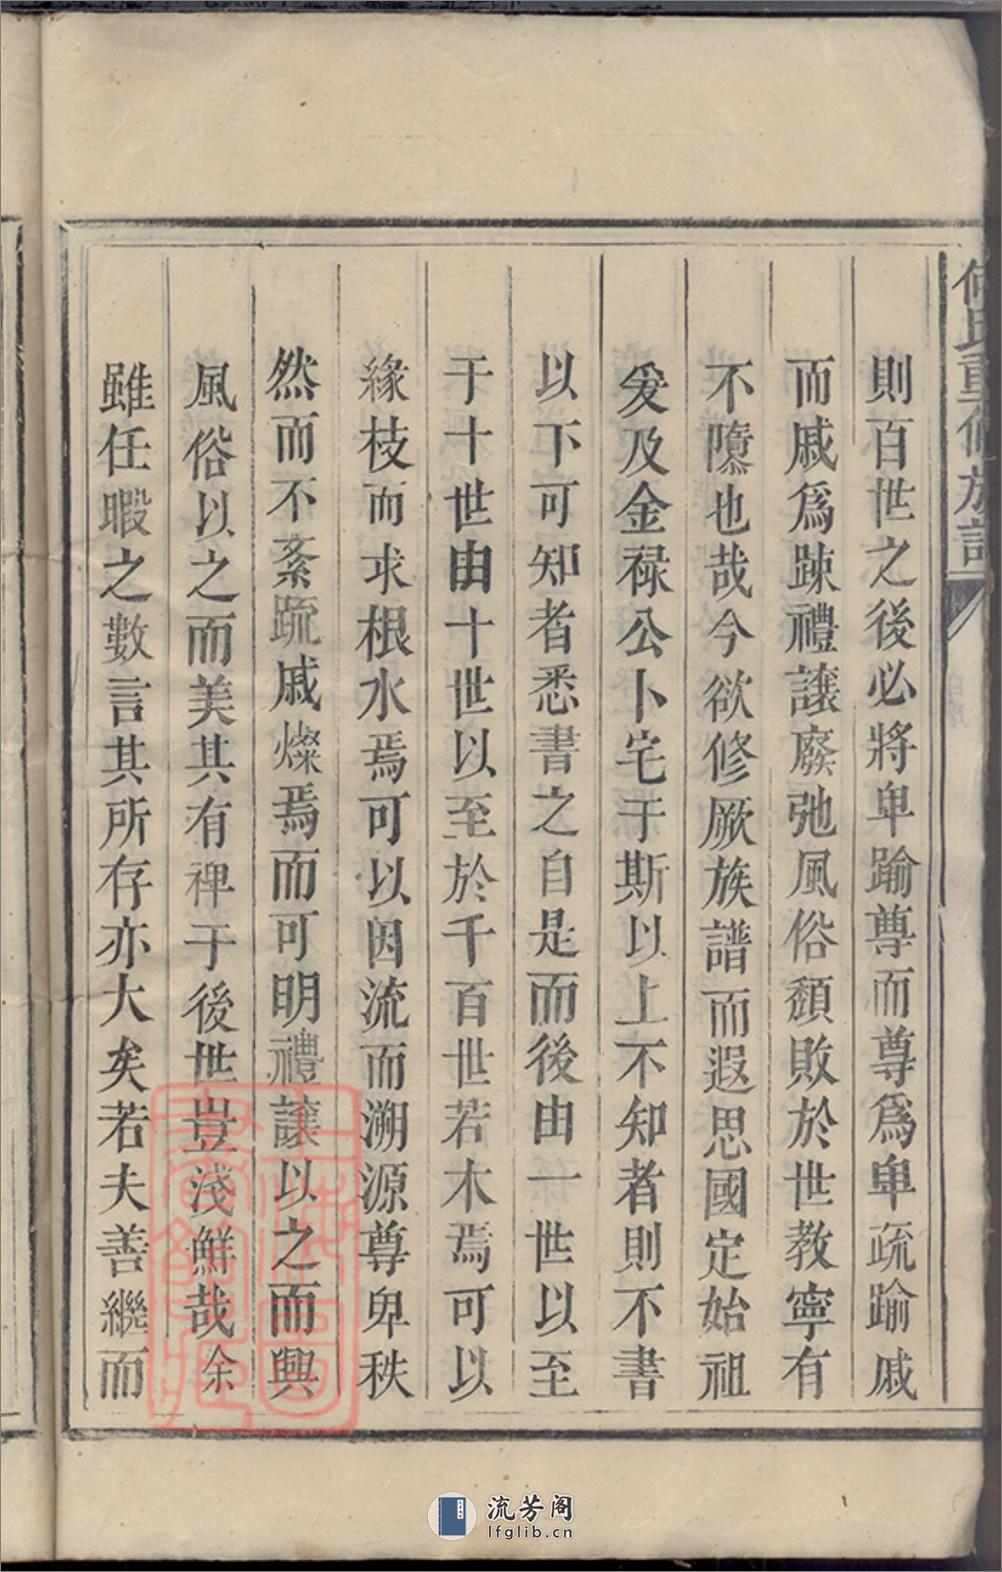 何氏重修族譜
則百世之後必將卑踰尊而尊爲卑疏踰戚
而戚爲踈禮讓廢弛風俗頹敗於世教寧有
不隳也哉今欲修厥族譜而遐思國定始祖
爰及金祿公卜宅于斯以上不知者則不書
以下可知者悉書之自是而後由一世以至
于十世由十世以至於千百世若木焉可以
緣枝而求根水焉可以因流而溯源尊卑秩
然而不紊䟽戚燦焉而可明禮讓以之而興
風俗以之而美其有裨于後世豈淺鮮哉余
雖任暇之數言其所存亦大矣若夫善繼而
上海圖書館藏
流芳阁
lfglib.cn